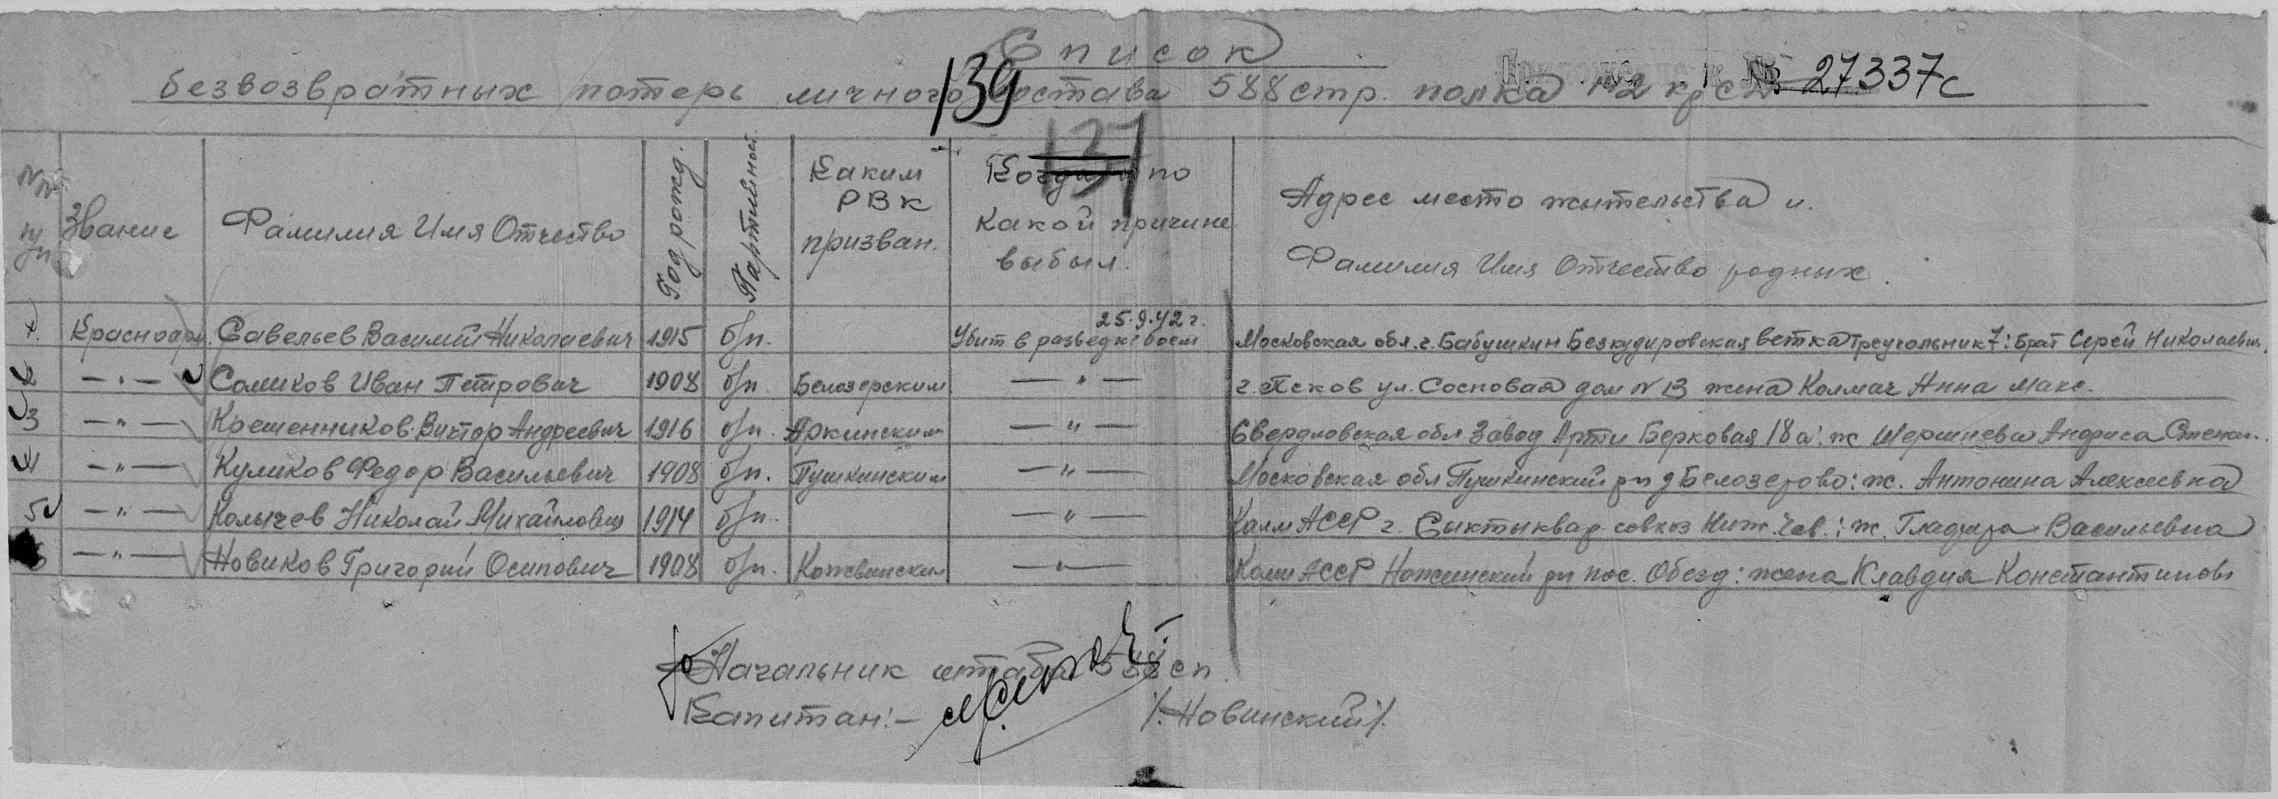 Список
безвозвратных потерь личного состава 588 стр. полка
139
№ 27337с
137
№№ Звание Фамилия Имя Отчество Год рожд. Партийност. Каким РВК призван. Когда и по какой причине выбыл. Адрес место жительства и. Фамилия Имя Отчество родных.
1. Красноарм. Савельев Василий Николаевич 1915 б/п. Убит в разведке боем 25.9.42 г. Московская обл. г. Бабушкин Безкудировская ветка Треугольник 7: брат Серей Николаевич.
2 — " — Соликов Иван Петрович 1908 б/п. Белозерским — " — г. Псков ул. Сосковая дом N 13 жена Колмач Анна Макс.
3 — " — Крешенников Виктор Андреевич 1916 б/п. Аркинским — " — Свердловская обл Завод Арти Берковая 18а: ж
4 — " — Куликов Федор Васильевич 1908 б/п. Пушкинским — " — Московская обл Пушкинский р-н д Белозерово: ж. Антонина Алексеевна
5 — " — Колычев Николай Михайлович 1914 б/п. — " — Коми АССР г. Сыктыквар совхоз Ниж. Чов.: ж. Васильевна
6 — " — Новиков Григорий Осипович 1908 б/п. Кожвинским — " — Коми АССР р-н пос. : жена Клавдия Константинов
Начальник штаба 588 сп.
Капитан:— /.Новинский/.